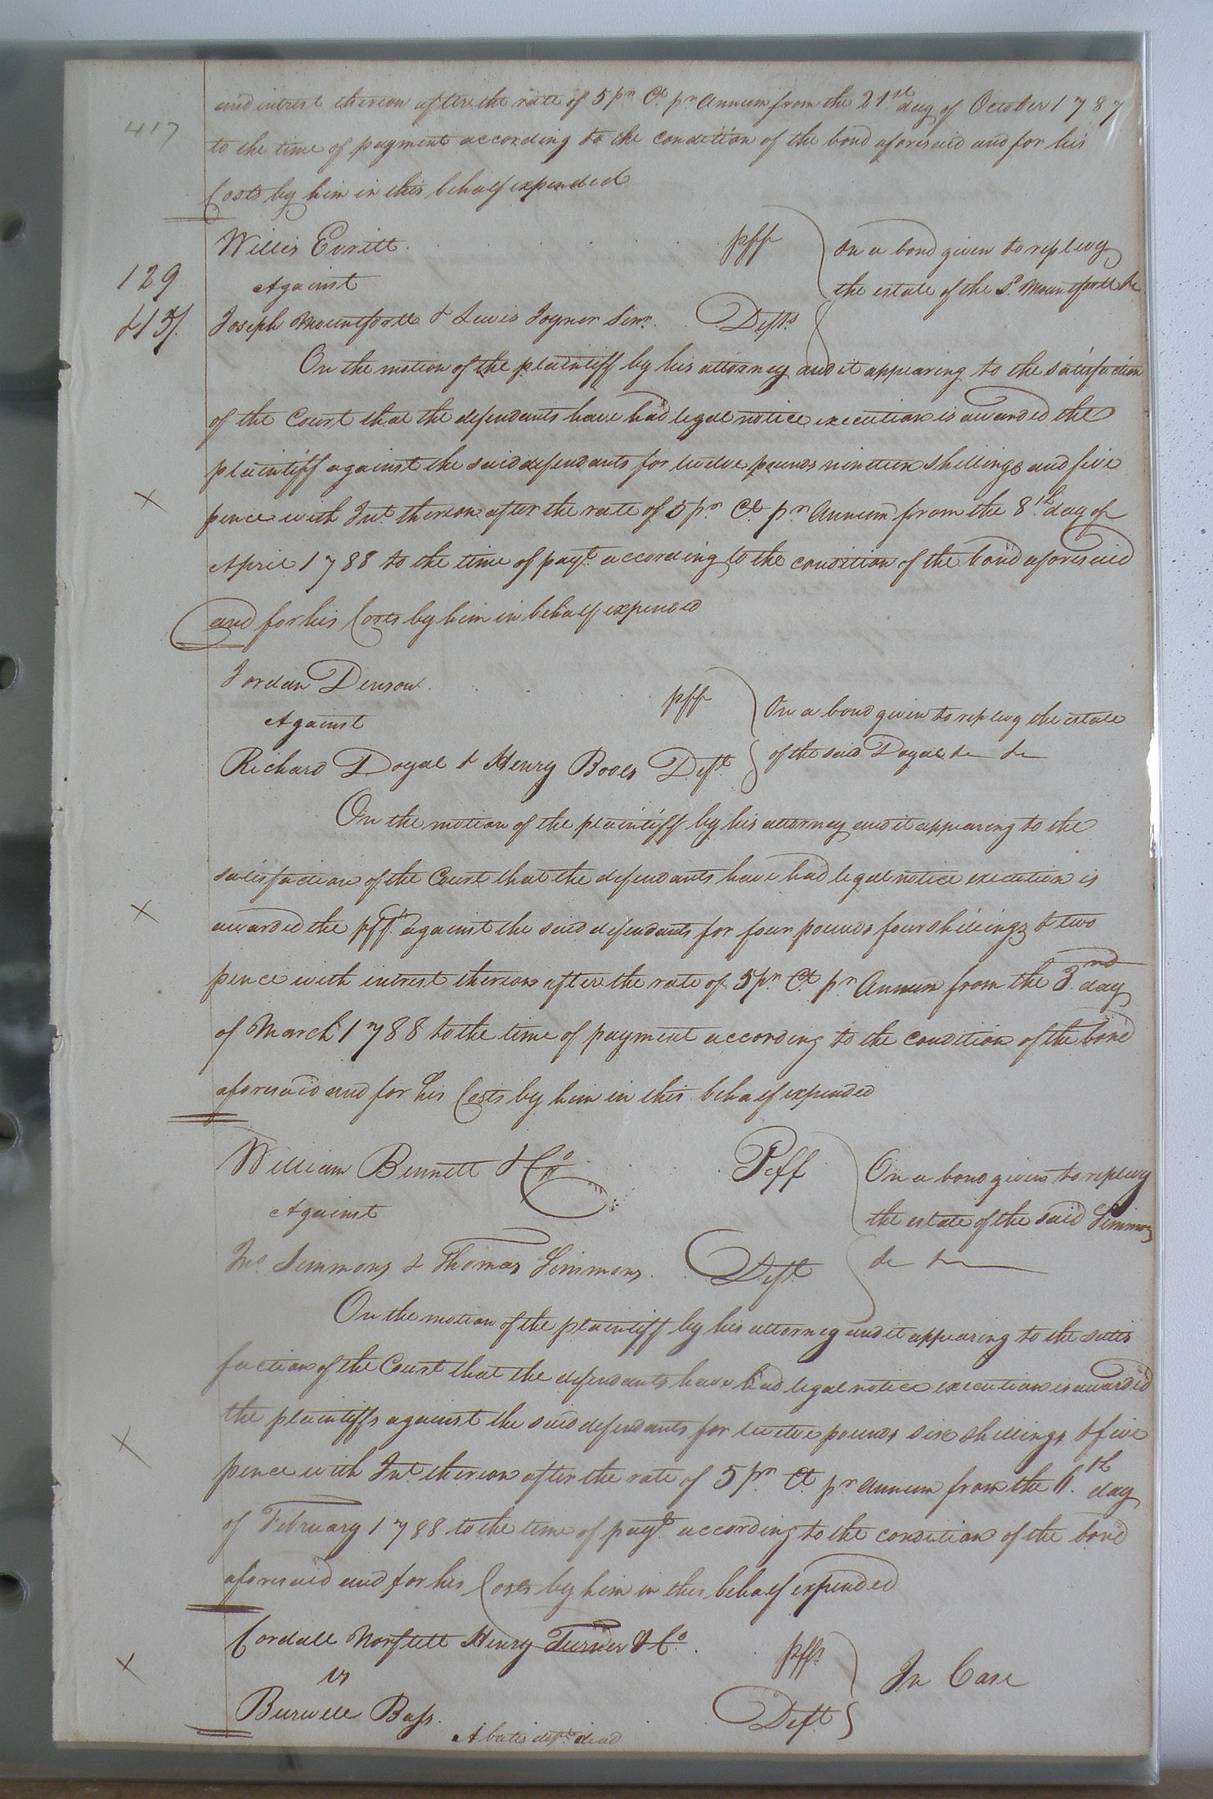 417
and intrest thereon after the rate of 5 pr. Ct. pr Annum from the 21st day of October 1787
to the time of payment according to the condition of the bond aforesaid and for his
Costs by him in this behalf expended
Willis Evritt pff On a bond given to replevy
129 Against the estate of the sd. Mountfortt &c
Joseph Mountfortt & Lewis Joyner Senr. Defts
On the motion of the plaintiff by his attorney and it appearing to the satisfaction
of the Court that the defendants have had legal notice execution is awarded the
plaintiff against the said defendants for twelve pounds nineteen shillings and five
pence with Int. thereon after the rate of 5 pr. Ct. pr Annum from the 8th day of
April 1788 to the time of payt. according to the condition of the bond aforesaid
and for his Costs by him in behalf expended
Jordan Denson pff On a bond given to replevy the estate
Against of the said Doyal &c &c
Richard Doyal & Henry Booes Deft.
On the motion of the plaintiff by his attorney and it appearing to the
satisfaction of the Court that the defendants have had legal notice execution is
awarded the pff. against the said defendants for four pounds four shillings & two
pence with intrest thereon after the rate of 5 pr. Ct. pr Annum from the 3rd day
of March 1788 to the time of payment according to the condition of the bond
aforesaid and for his Costs by him in this behalf expended
William Bennett & Co. Peff On a bond given to replevy
Against the estate of the said Simmons
Jno. Simmons & Thomas Simmons. Deft. &c &c
On the motion of the plaintiff by his attorney and it appearing to the satis
faction of the Court that the defendants have had legal notice execution is awarded
the plaintiffs against the said defendants for twelve pounds six shillings & five
pence with Int. thereon after the rate of 5 pr. Ct. pr Annum from the day
of February 1788 to the time of payt. according to the condition of the bond
aforesaid and for his Costs by him in this behalf expended
Cordall Norflett Henry Turner & Co. pffs
vs In Case
Burwell Bass. Deft
Abates deft. dead